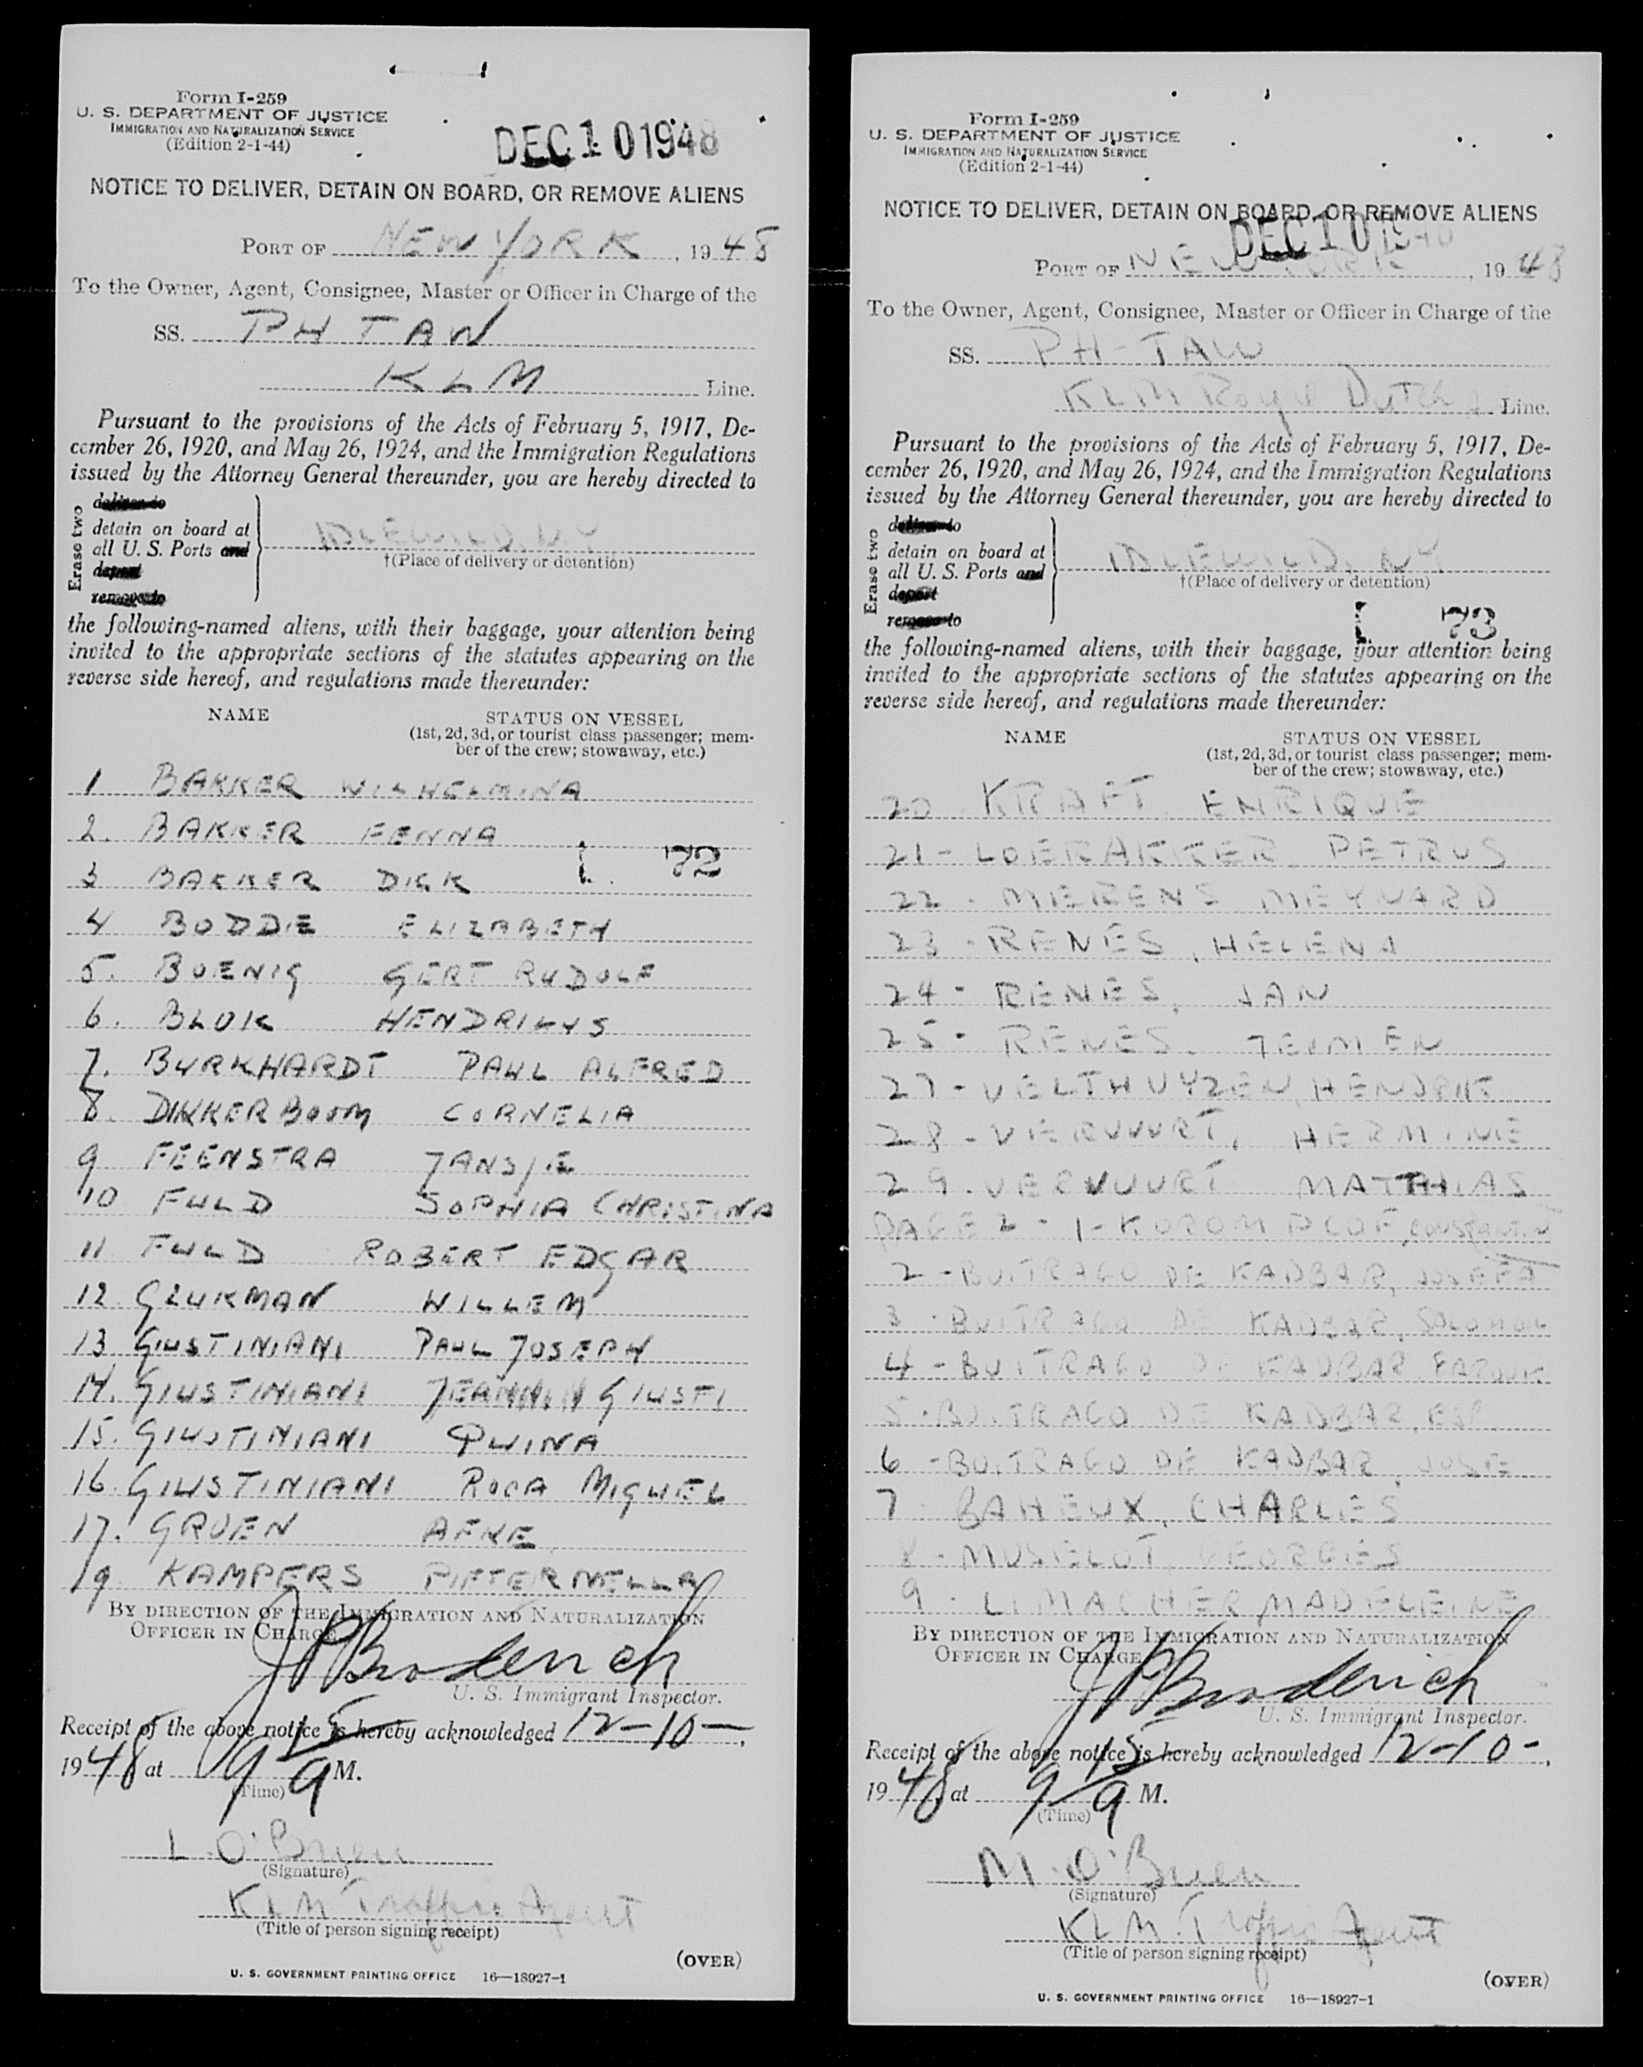 Form I-259
U. S. DEPARTMENT OF JUSTICE
IMMIGRATION AND NATURALIZATION SERVICE
(Edition 2-1-44)
DEC 10 1948
NOTICE TO DELIVER, DETAIN ON BOARD, OR REMOVE ALIENS
PORT OF NEW YORK, 1948
To the Owner, Agent, Consignee, Master or Officer in Charge of the
SS. PH TAW
KLM Line.
Pursuant to the provisions of the Acts of February 5, 1917, De-
cember 26, 1920, and May 26, 1924, and the Immigration Regulations
issued by the Attorney General thereunder, you are hereby directed to
Erase two
deliver to
detain on board at
all U. S. Ports and
deport
remove to
IDLEWILD, N.Y
†(Place of delivery or detention)
the following-named aliens, with their baggage, your attention being
invited to the appropriate sections of the statutes appearing on the
reverse side hereof, and regulations made thereunder:
NAME STATUS ON VESSEL
(1st, 2d, 3d, or tourist class passenger; mem-
ber of the crew; stowaway, etc.)
1 BAKKER WILHELMINA
2. BAKKER FENNA
72
3 BAKKER DICK
4 BODDIE ELIZABETH
5. BOENIG GERT RUDOLF
6. BLOK HENDRIKUS
7. BURKHARDT PAUL ALFRED
8. DIKKERBOOM CORNELIA
9 FEENSTRA JANSJE
10 FULD SOPHIA CHRISTINA
11 FULD ROBERT EDGAR
12 GLUKMAN WILLEM
13 GIUSTINIANI PAUL JOSEPH
14. GIUSTINIANI GIUSTI
15. GIUSTINIANI
16. GIUSTINIANI ROCA MIGUEL
17. GROEN AFKE
19 KAMPERS PIETERNELLA
BY DIRECTION OF THE IMMIGRATION AND NATURALIZATION
OFFICER IN CHARGE
J P Broderich
U. S. Immigrant Inspector.
Receipt of the above notice is hereby acknowledged 12-10-,
1948 at 9 15 A M.
(Time)
L. O'Brien
(Signature)
KLM Traffic Agent
(Title of person signing receipt)
(OVER)
U. S. GOVERNMENT PRINTING OFFICE 16—18927-1
Form I-259
U. S. DEPARTMENT OF JUSTICE
IMMIGRATION AND NATURALIZATION SERVICE
(Edition 2-1-44)
NOTICE TO DELIVER, DETAIN ON BOARD, OR REMOVE ALIENS
DEC 10 1948
PORT OF NEW YORK, 1948
To the Owner, Agent, Consignee, Master or Officer in Charge of the
SS. PH-TAW
KLM Royal Dutch Line.
Pursuant to the provisions of the Acts of February 5, 1917, De-
cember 26, 1920, and May 26, 1924, and the Immigration Regulations
issued by the Attorney General thereunder, you are hereby directed to
Erase two
deliver to
detain on board at
all U. S. Ports and
deport
remove to
IDLEWILD, NY
†(Place of delivery or detention)
73
the following-named aliens, with their baggage, your attention being
invited to the appropriate sections of the statutes appearing on the
reverse side hereof, and regulations made thereunder:
NAME STATUS ON VESSEL
(1st, 2d, 3d, or tourist class passenger; mem-
ber of the crew; stowaway, etc.)
20 KRAFT ENRIQUE
21- LOERAKKER PETRUS
22- MEYNARD
23- RENES, HELENA
24- RENES, JAN
25- RENES,
27- VELTHUYZEN, HENDRIK
28- VERVUURT, HERMINE
29- VERVUURT MATTHIAS
PAGE 2 - 1-
2-BUITRAGO DE KADBAR, JOSEFA
3-BUITRAGO DE KADBAR, SOLOMON
4-BUITRAGO DE KADBAR FAROUK
5-BUITRAGO DE KADBAR,
6-BUITRAGO DE KADBAR, JOSE
7- BAHEUX, CHARLES
8- MUSELOT, GEORGES
9- LIMACHER, MADELEINE
BY DIRECTION OF THE IMMIGRATION AND NATURALIZATION
OFFICER IN CHARGE
J P Broderich
U. S. Immigrant Inspector.
Receipt of the above notice is hereby acknowledged 12-10-,
1948, at 9 15 A M.
(Time)
M. O'Brien
(Signature)
KLM. Traffic Agent
(Title of person signing receipt)
(OVER)
U. S. GOVERNMENT PRINTING OFFICE 16—18927-1